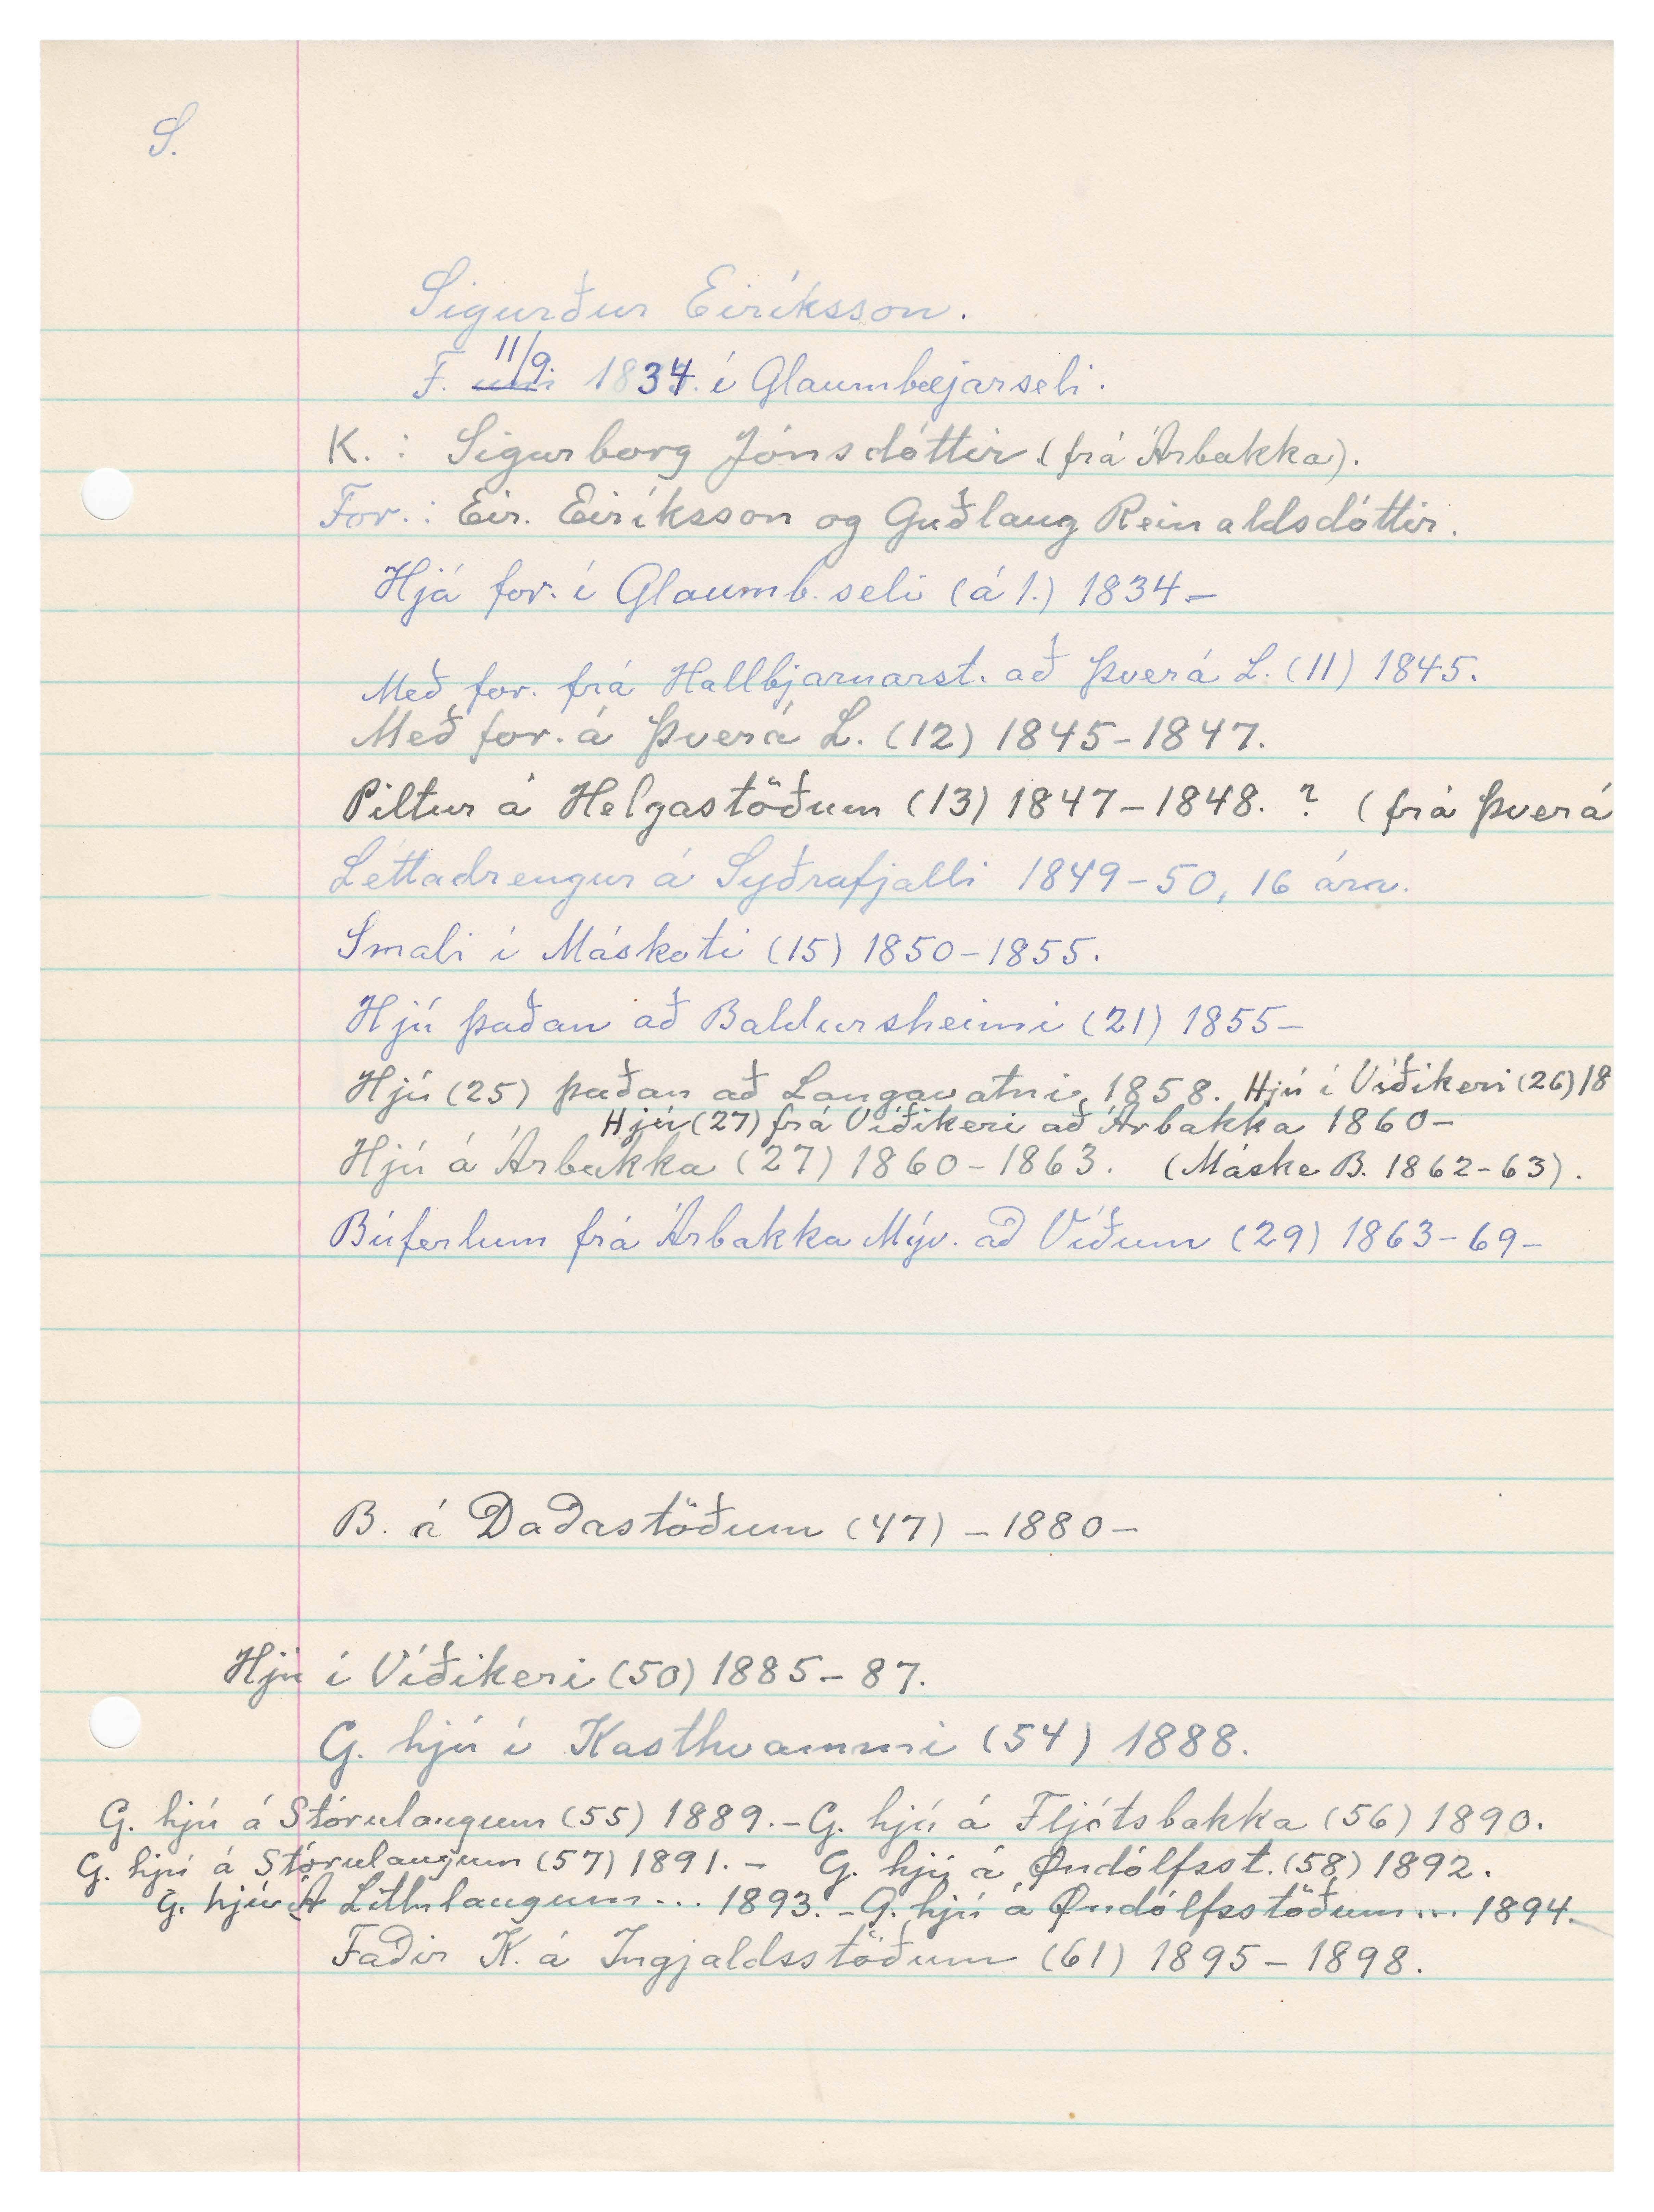 S.
Sigurður Eiríksson.
11/9
F. um 1834. í Glaumbæjarseli.
K.: Sigurborg Jónsdóttir (frá Árbakka).
For.: Eir. Eiríksson og Guðlaug Reinaldsdóttir.
Hjá for. í Glaumb. seli (á 1.) 1834-
Með for. frá Hallbjarnarst. að Þverá L. (11) 1845.
Með for. á Þverá L. (12) 1845-1847.
Piltur á Helgastöðum (13) 1847-1848. ? (frá Þverá
Léttadrengur á Syðrafjalli 1849-50, 16 ára.
Smali í Máskoti (15) 1850-1855.
Hjú þaðan að Baldursheimi (21) 1855-
Hjú (25) þaðan að Langavatni, 1858. Hjú í Víðikeri (26) 18
Hjú (27) frá Víðikeri að Árbakka 1860-
Hjú á Árbakka (27) 1860-1863. (Máske B. 1862-63).
Búferlum frá Árbakka Mýv. að Víðum (29) 1863-69-
B. á Daðastöðum (47) -1880-
Hjú í Víðikeri (50) 1885-87.
G. hjú í Kasthvammi (54) 1888.
G. hjú á Stórulaugum (55) 1889.- G. hjú á Fljótsbakka (56) 1890.
G. hjú á Stórulaugum (57) 1891. - G. hjú á Öndólfsst. (58) 1892.
G. hjú Á Litlulaugum... 1893. - G. hjú á Öndólfsstöðum... 1894.
Faðir K. á Ingjaldsstöðum (61) 1895-1898.